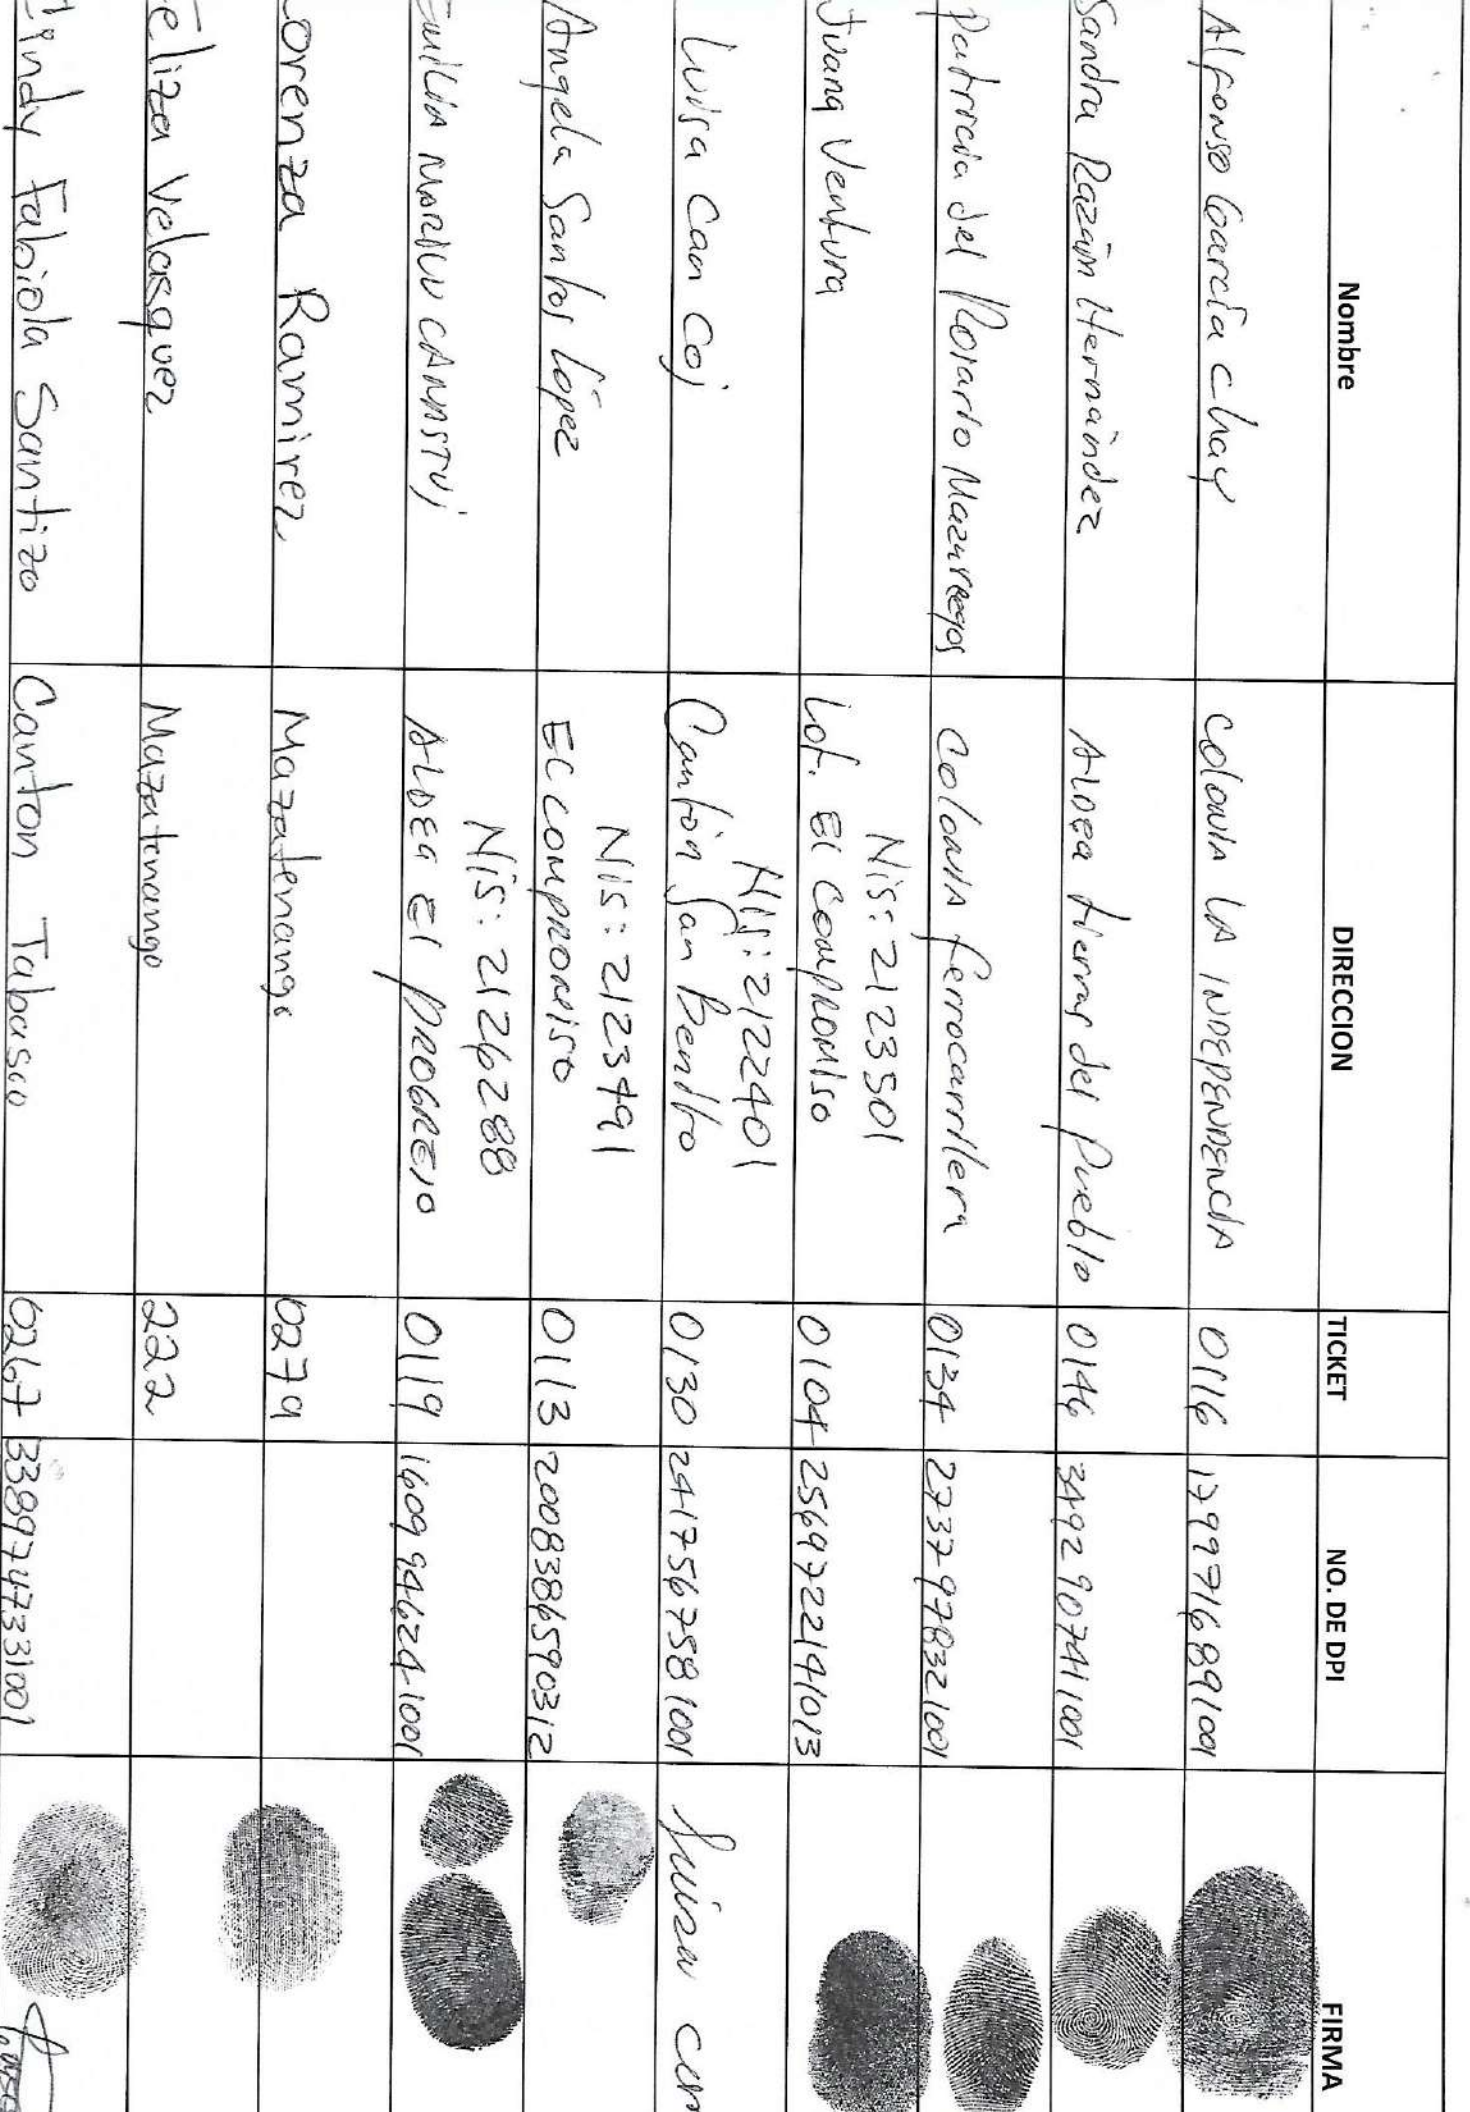 Nombre DIRECCION TICKET NO. DE DPI FIRMA
Alfonso García Chay COLONIA LA INDEPENDENCIA 0116 1799716891001
Sandra Razón Hernández ALDEA tierras del Pueblo 0146 3492907411001
Patricia del Rosario Mazariegos Colonia ferrocarrilera 0134 2737978321001
Nis: 2123501
Juana Ventura Lot. El COMPROMISO 0104 2569722191013
Nis: 2122401
Luisa Can Coj Cantón San Benito 0130 2417567581001
Nis: 2123791
Angela Santos López El COMPROMISO 0113 2008386590312
Nis: 2126288
EMILIA ALDEA El PROGRESO 0119 1609946241001
orenza Ramirez Mazatenango 0279
eliza Velasquez Mazatenango 222
indy Fabiola Santizo Canton Tabasco 0267 3389747331001